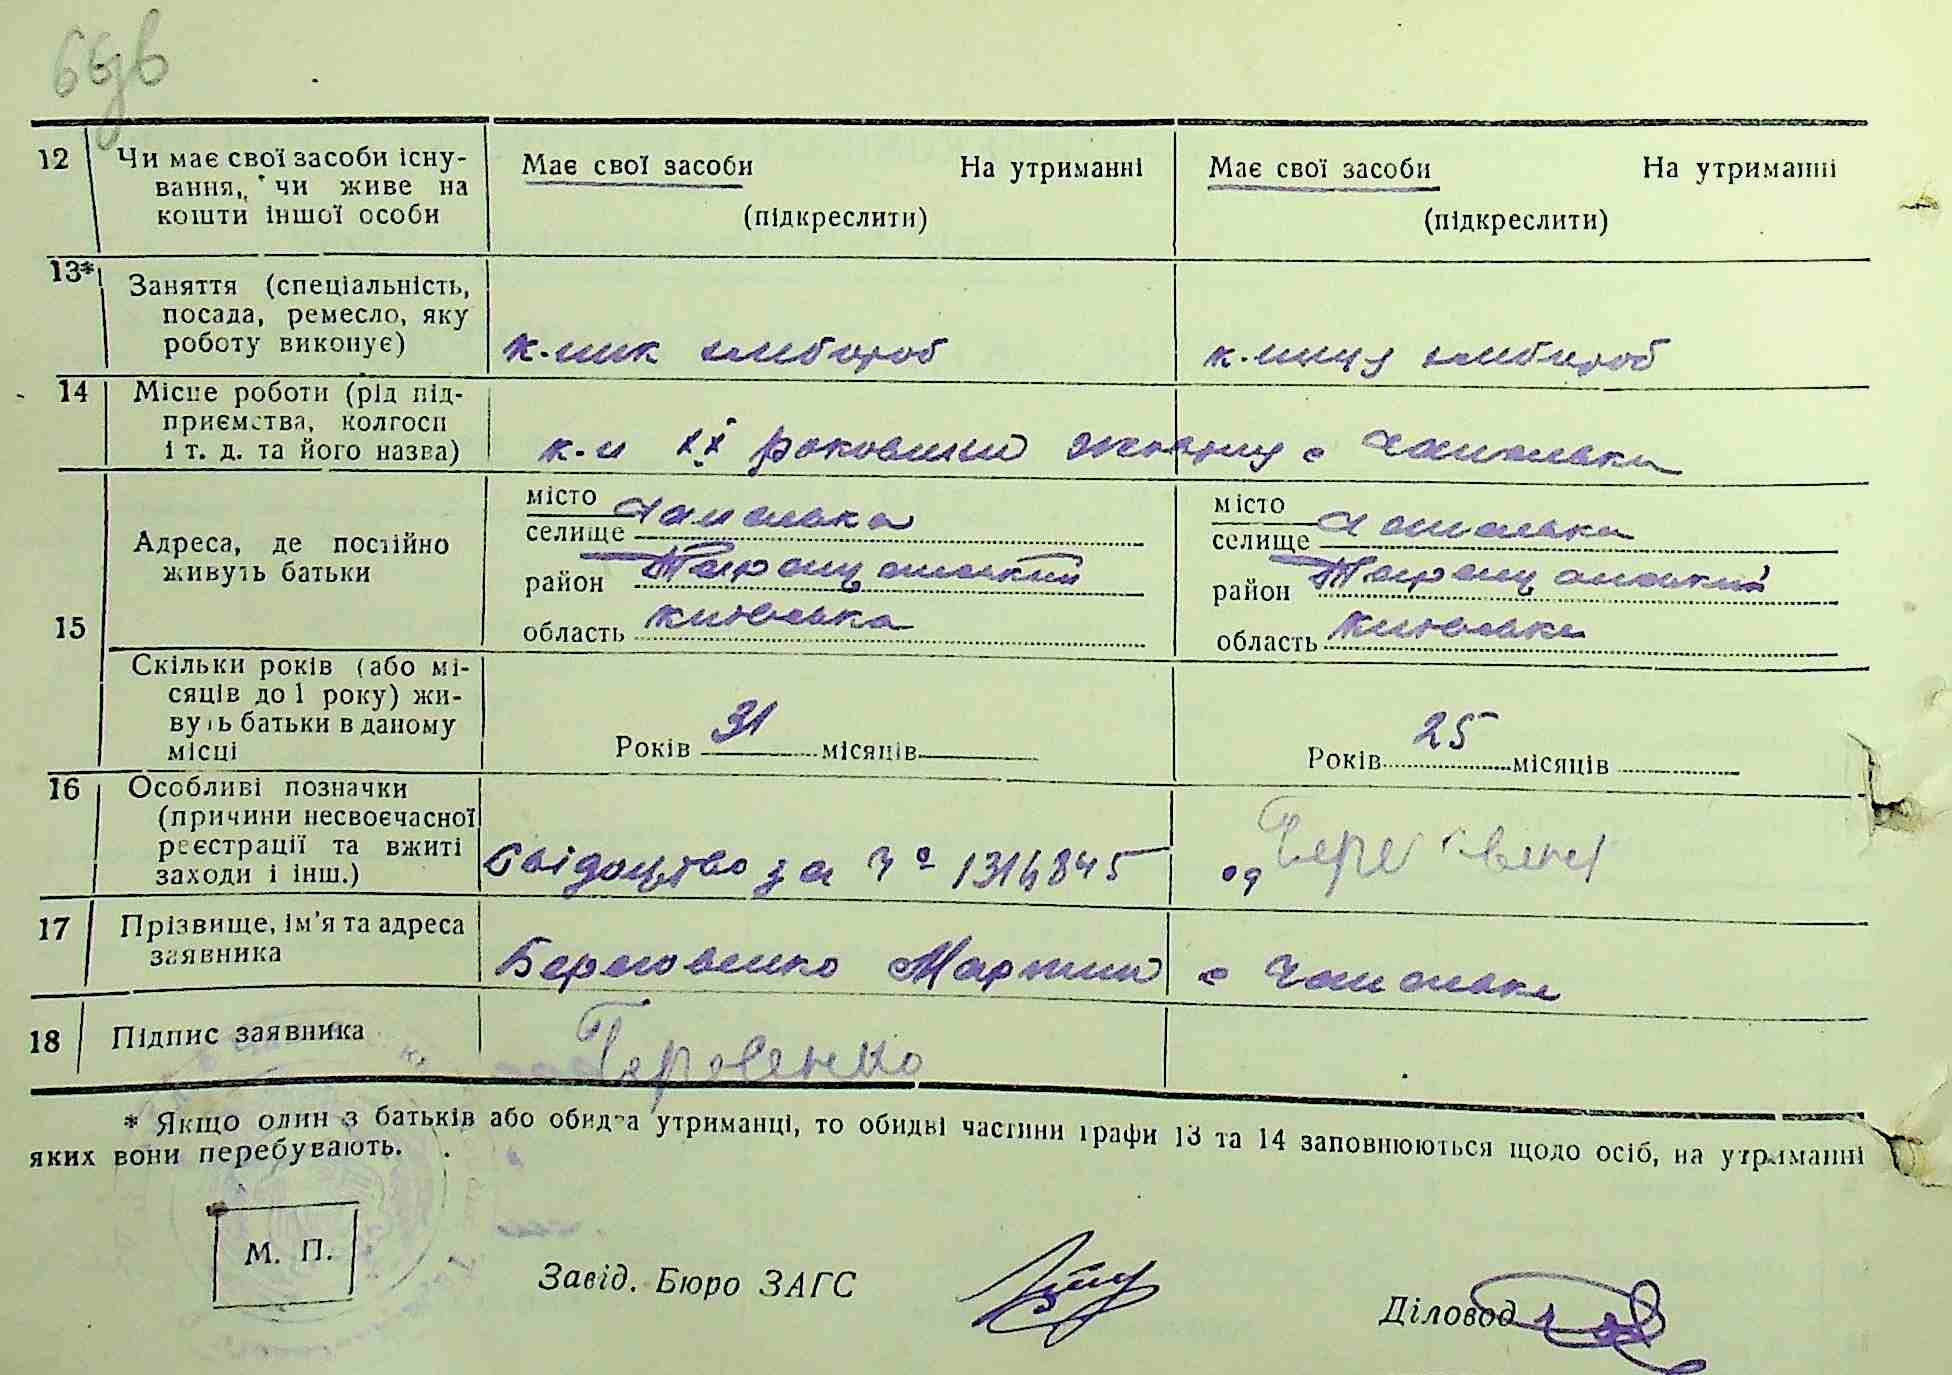 66зв
12 Чи має свої засоби існу-
вання, чи живе на
кошти іншої особи
Має свої засоби На утриманні
(підкреслити)
Має свої засоби На утриманні
(підкреслити)
13* Заняття (спеціальність,
посада, ремесло, яку
роботу виконує)
к-ник хлібороб
к-ниця хлібороб
14 Місце роботи (рід під-
приємства, колгосп
і т. д. та його назва)
к-п ХХ роковини жовтня с Чапаєвка
15 Адреса, де постійно
живуть батьки
місто
селище Чапаєвка
район Таращанський
область київська
місто
селище Чапаєвка
район Таращанський
область київська
Скільки років (або мі-
сяців до 1 року) жи-
вуть батьки в даному
місці
Років 31 місяців
Років 25 місяців
16 Особливі позначки
(причини несвоєчасної
реєстрації та вжиті
заходи і інш.)
Свідоцтво за Ч° 1316845 од
17 Прізвище, ім'я та адреса
заявника
Береговенко Мартин с
18 Підпис заявника
* Якщо один з батьків або обидва утриманці, то обидві частини графи 13 та 14 заповнюються щодо осіб, на утриманні
яких вони перебувають.
М. П.
Завід. Бюро ЗАГС
Діловод